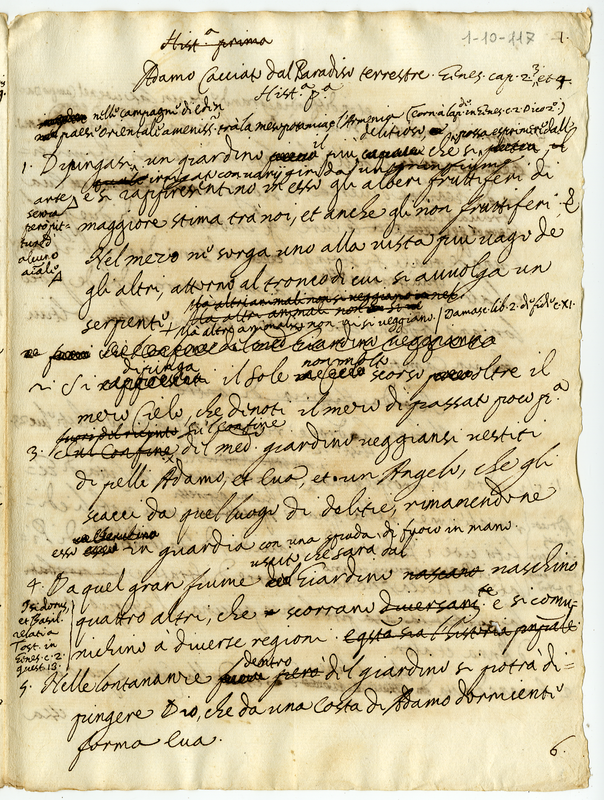 Hist.ª prima
1-10-117
1.
Adamo Cacciato dal Paradiso terrestre. Genes. cap. 2. 3. et 4.
Hist.ª p.ª
nelle campagne di Eden
paesi Orientali ameniss.ⁱ tra la mesopotamia, e l'Armenia (Corn. à lap. in Genes. c. 2.
delitioso, possa esprimer dall'
1. Dipingasi un giardino il più che si
arte irrigato con varij giri da un
senza però pit= e si rappresentino in esso gli alberi fruttiferi di
maggiore stima tra noi, et anche gli non fruttiferi; E
Nel mezo ne sorga uno alla vista più vago de
gli altri, attorno al tronco di cui si avvolga un
ma altri animali non si veggiano
serpente ma altri animali non vi si veggiano. Damasc. lib. 2. de fide c. XI.
dipinga non molto
2. Si il Sole scorso oltre il
mezo Cielo, che dinoti il mezo dì passato poco p.ª
fuori del recinto sul confine
3. del med.º giardino veggiansi vestiti
di pelli Adamo, et Eva, et un Angelo, che gli
scacci da quel luogo di delitie, rimanendone
esso in guardia con una spada di fuoco in mano.
uscito che sarà dal
4. Da quel gran fiume Giardino naschino
Isidorus, et Basil. relati a Tost. in Genes. c. 2. quest. 13.
quattro altri, che scorrano e si comu=
nichino à diverse regioni. e q.sta sia l'historia prn̄pale
dentro
5. Nelle lontananze del giardino si potrà di=
pingere Dio, che da una costa di Adamo dormiente
forma Eva.
6.